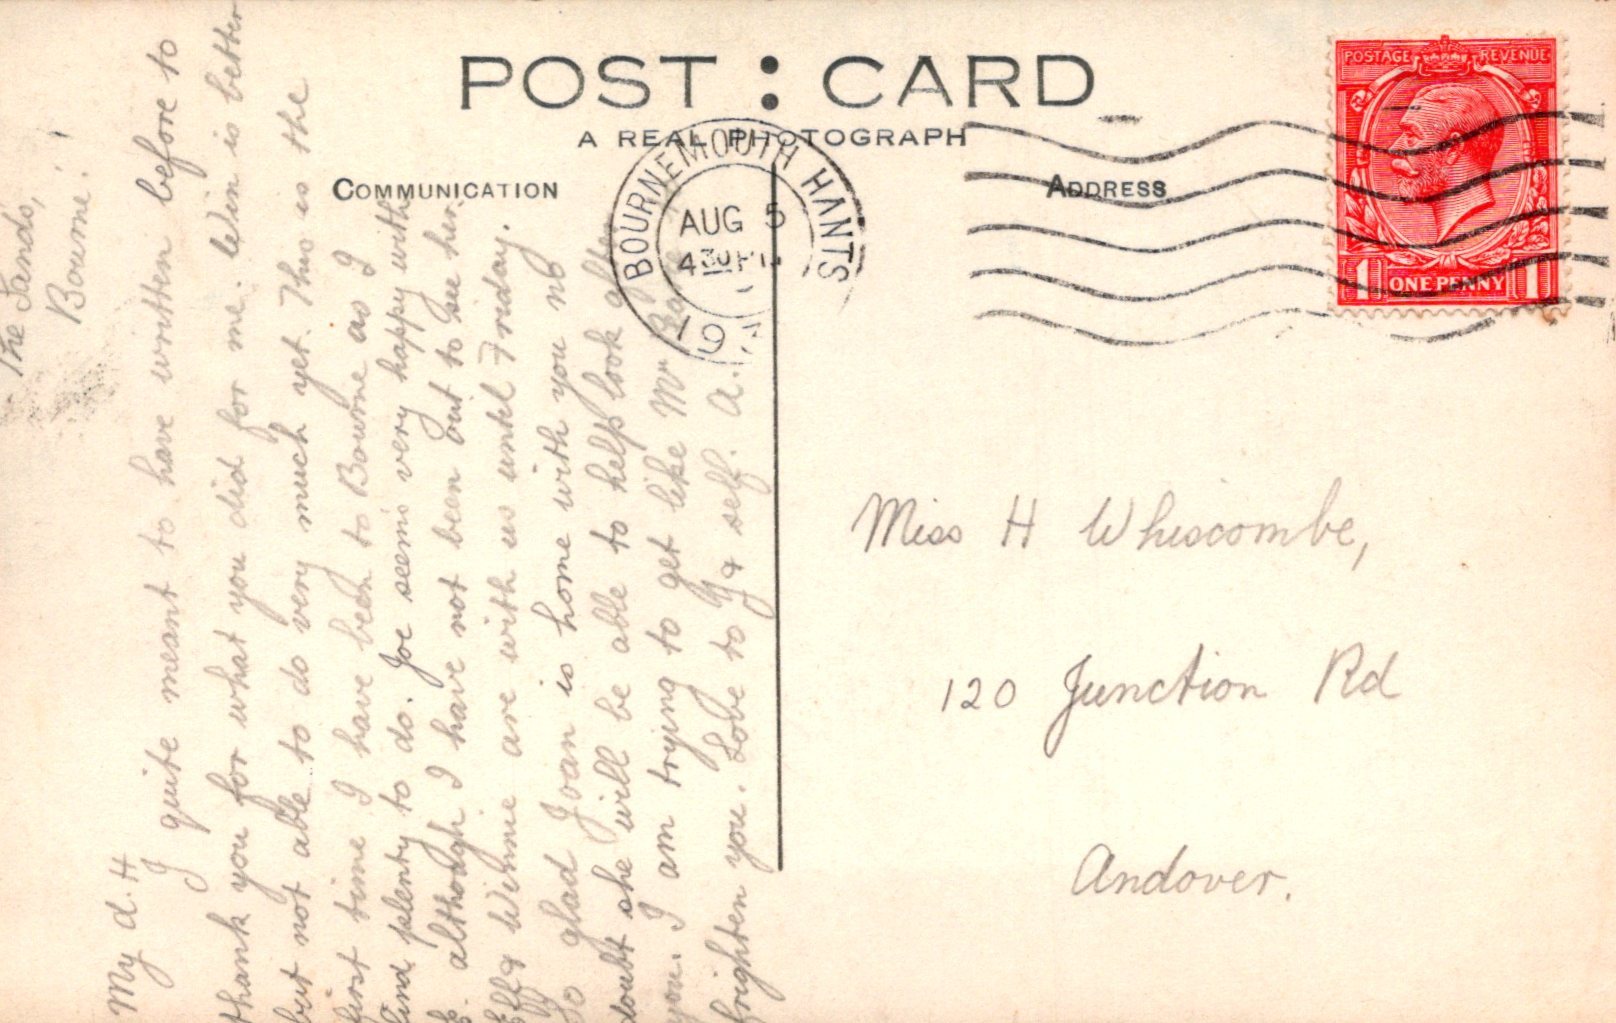 POST : CARD
A REAL PHOTOGRAPH
COMMUNICATION
ADDRESS
POSTAGE REVENUE
1 ONE PENNY 1
BOURNEMOUTH HANTS
AUG 5
430 PM
19
The Sands,
Bourne!
My d. H
I quite meant to have written before to
thank you for what you did for me. Win is better
but not able to do very much yet. This is the
first time I have been to Bourne as I
find plenty to do. Joe seems very happy with
although I have not been out to see her.
Eff & Winnie are with us until Friday.
So glad Joan is home with you no
doubt she will be able to help look after
you. I am trying to get like Mr
frighten you. Love to J & self. A.
Miss H Whiscombe,
120 Junction Rd
Andover.